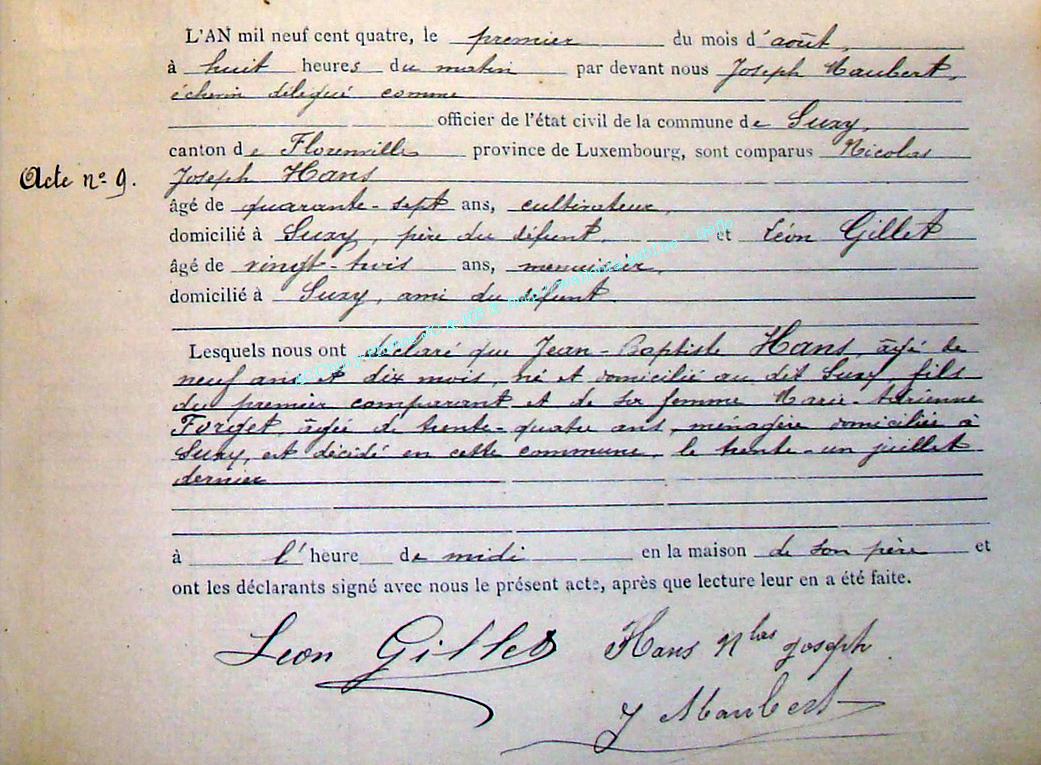 L'AN mil neuf cent quatre, le premier du mois d'août,
à huit heures du matin par devant nous Joseph Maubert,
échevin délégué comme
officier de l'état civil de la commune de Suxy,
canton de Florenville province de Luxembourg, sont comparus Nicolas
Acte n° 9.
Joseph Hans
âgé de quarante-sept ans, cultivateur,
domicilié à Suxy, père du défunt et Léon Gillet
âgé de vingt-trois ans, menuisier,
domicilié à Suxy, ami du défunt
Lesquels nous ont déclaré que Jean-Baptiste Hans, âgé de
neuf ans et dix mois, né et domicilié au dit Suxy fils
du premier comparant et de sa femme Marie-Adrienne
Forget, âgée de trente-quatre ans, ménagère domiciliée à
Suxy, est décédé en cette commune, le trente-un juillet
dernier
à l'heure de midi en la maison de son père et
ont les déclarants signé avec nous le présent acte, après que lecture leur en a été faite.
Leon Gillet Hans Nlas joseph
J Maubert